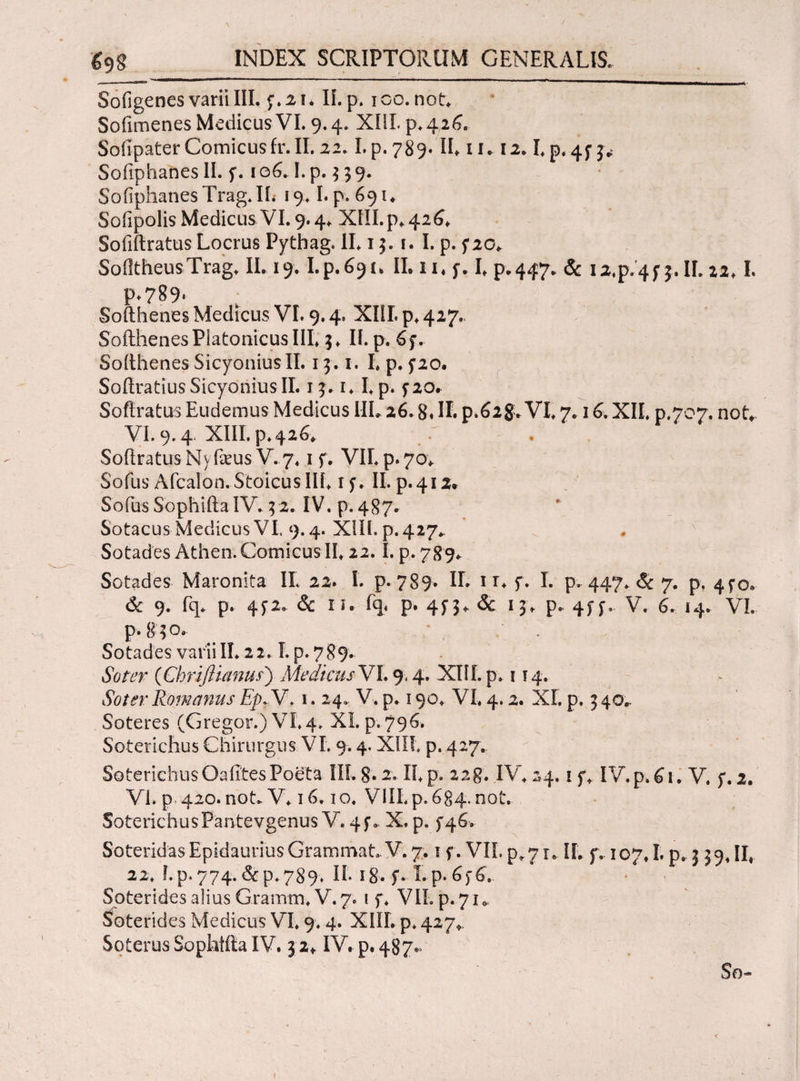 698 INDEX SCRIPTORUM GENERALIS.
Soſigenes varii III. 5. 21. II. p. 100. not.
Soſimenes Medicus VI. 9. 4. XIII. p. 426.
Soſipater Comicus fr. II. 22. I. p. 789. II. 11. 12. I. p. 453.
Soſiphanes II. 5. 106. I. p. 339.
Soſiphanes Trag. II. 19. I. p. 691.
Soſipolis Medicus VI. 9. 4. XIII. p. 426.
Soſiſtratus Locrus Pythag. II. 13. 1. I. p. 520.
Soſitheus Trag. II. 19. I. p. 691. II. 11. 5. I. p. 447. & 12. p. 453. II. 22. I.
p. 789.
Soſthenes Medicus VI. 9. 4. XIII. p. 427.
Soſthenes Platonicus III. 3. II. p. 65.
Soſthenes Sicyonius II. 13. 1. I. p. 520.
Soſtratius Sicyonius II. 13. 1. I. p. 520.
Soſtratus Eudemus Medicus III. 26. 8. II. p. 628. VI. 7. 16. XII. p. 707. not.
VI. 9. 4. XIII. p. 426.
Soſtratus Nyſæus V. 7. 15. VII. p. 70.
Soſus Aſcalon. Stoicus III. 15. II. p. 412.
Soſus Sophiſta IV. 32. IV. p. 487.
Sotacus Medicus VI. 9. 4. XIII. p. 427.
Sotades Athen. Comicus II. 22. I. p. 789.
Sotades Maronita II. 22. I. p. 789. II. 11. 5. I. p. 447. & 7. p. 450.
& 9. ſq. p. 452. & 11. ſq. p. 453. & 13. p. 455. V. 6. 14. VI.
p. 830.
Sotades varii II. 22. I. p. 789.
Soter (Chriſtianus) Medicus VI. 9. 4. XIII. p. 114.
Soter Romanus Ep. V. 1. 24. V. p. 190. VI. 4. 2. XI. p. 340.
Soteres (Gregor.) VI. 4. XI. p. 796.
Soterichus Chirurgus VI. 9. 4. XIII. p. 427.
Soterichus Oaſites Poëta III. 8. 2. II. p. 228. IV. 24. 15. IV. p. 61. V. 5. 2.
VI. p. 420. not. V. 16. 10. VIII. p. 684. not.
Soterichus Pantevgenus V. 45. X. p. 546.
Soteridas Epidaurius Grammat. V. 7. 15. VII. p. 71. II. 5. 107. I. p. 339. II.
22. I. p. 774. & p. 789. II. 18. 5. I. p. 656.
Soterides alius Gramm. V. 7. 15. VII. p. 71.
Soterides Medicus VI. 9. 4. XIII. p. 427.
Soterus Sophiſta IV. 32. IV. p. 487.
So-